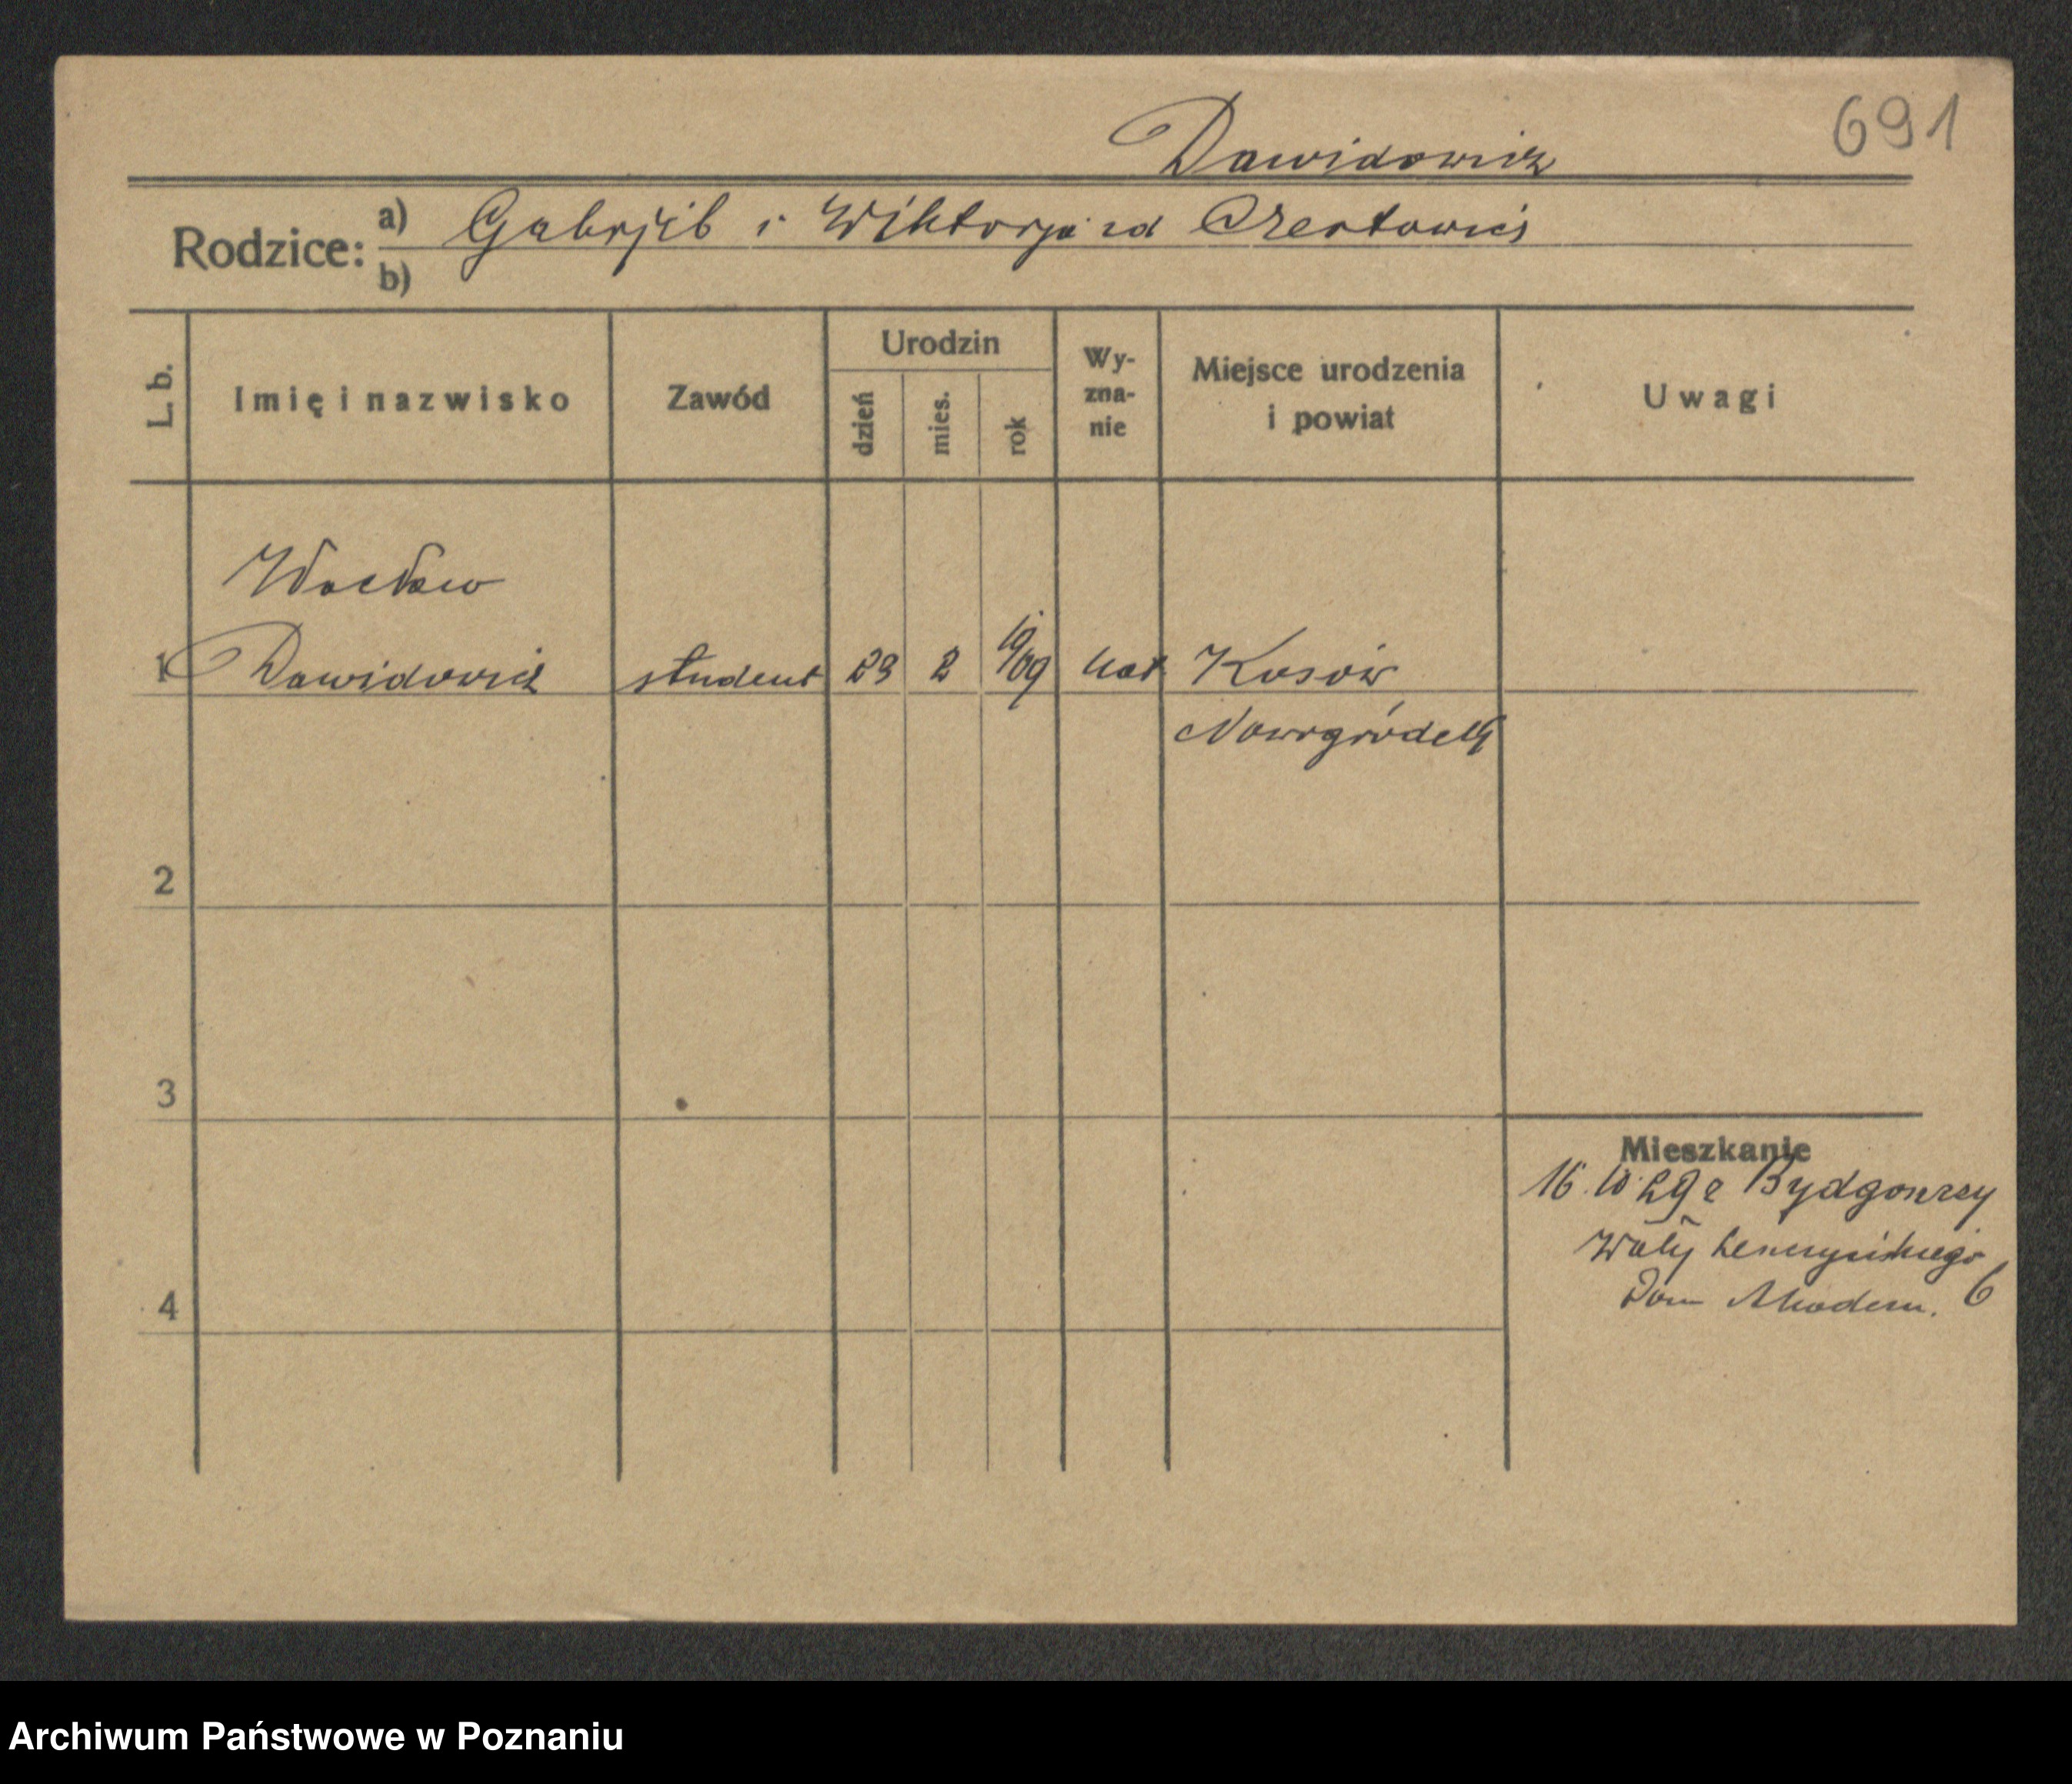 691
Dawidowicz
Rodzice: a) Gabrjel i Wiktorja zd
b)
L. b.
Imię i nazwisko
Zawód
Urodzin
dzień
mies.
rok
Wy-
zna-
nie
Miejsce urodzenia
i powiat
Uwagi
Wacław
1 Dawidowicz student 23 2 19/09 kat Kosów
Nowogródek
2
3
Mieszkanie
16 10 29 z Bydgoszczy
Wały Leszczyńskiego
4
Dom Akadem. 6
Archiwum Państwowe w Poznaniu